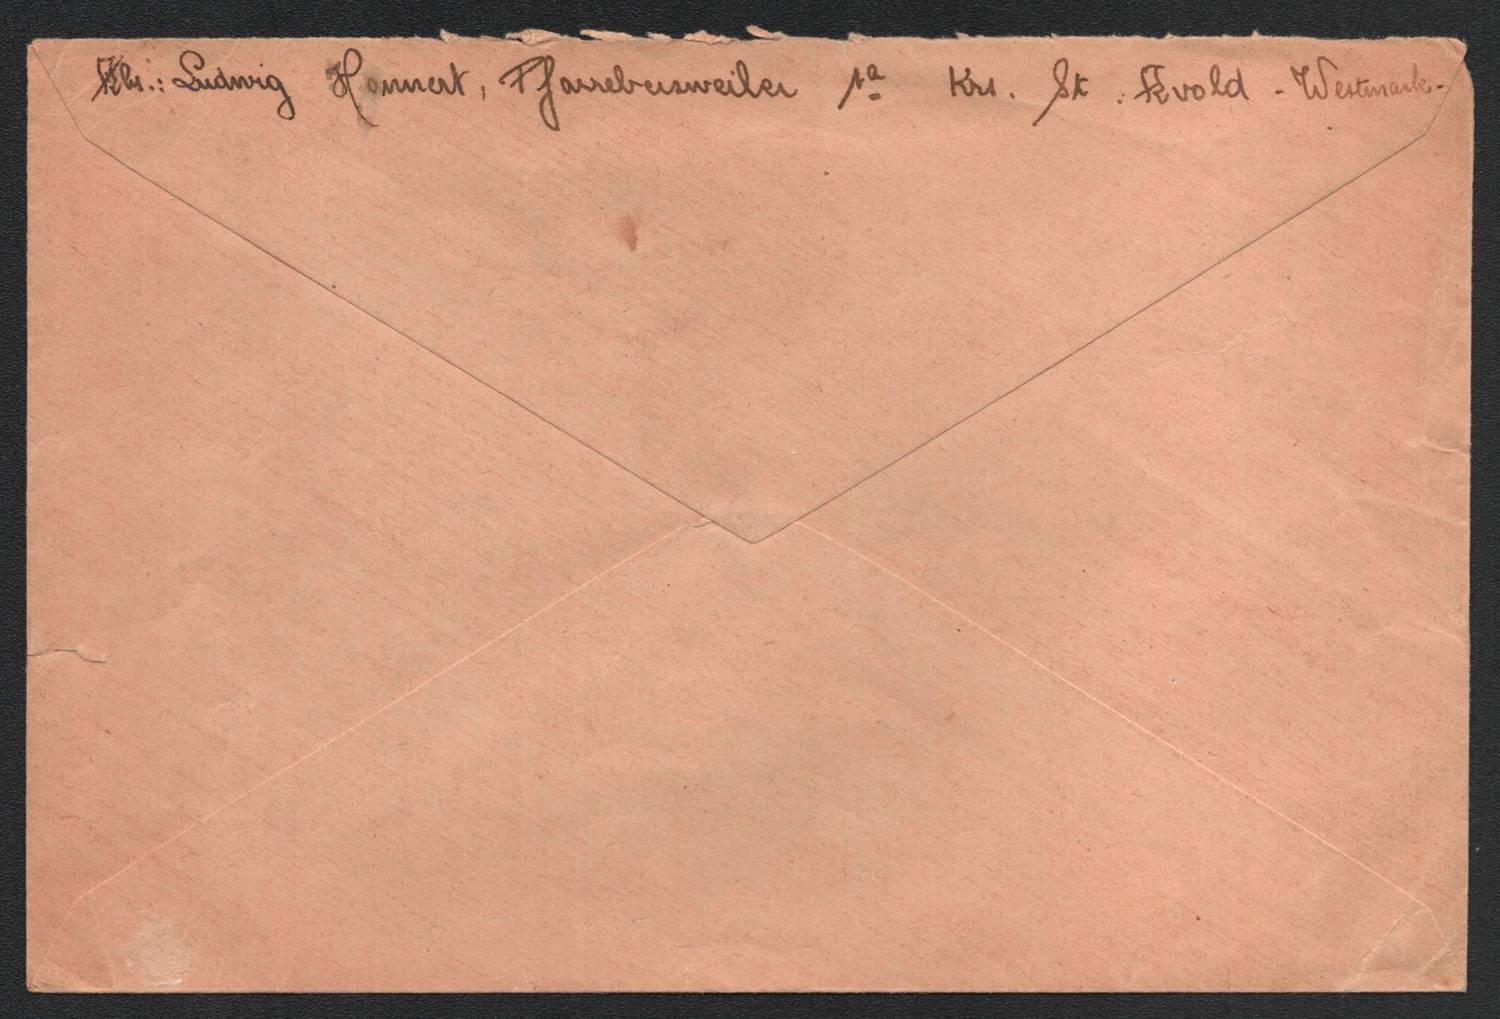 Abs.: Ludwig Honnert, Pfarrebersweiler 1a Krs. St. Avold - Westmark -